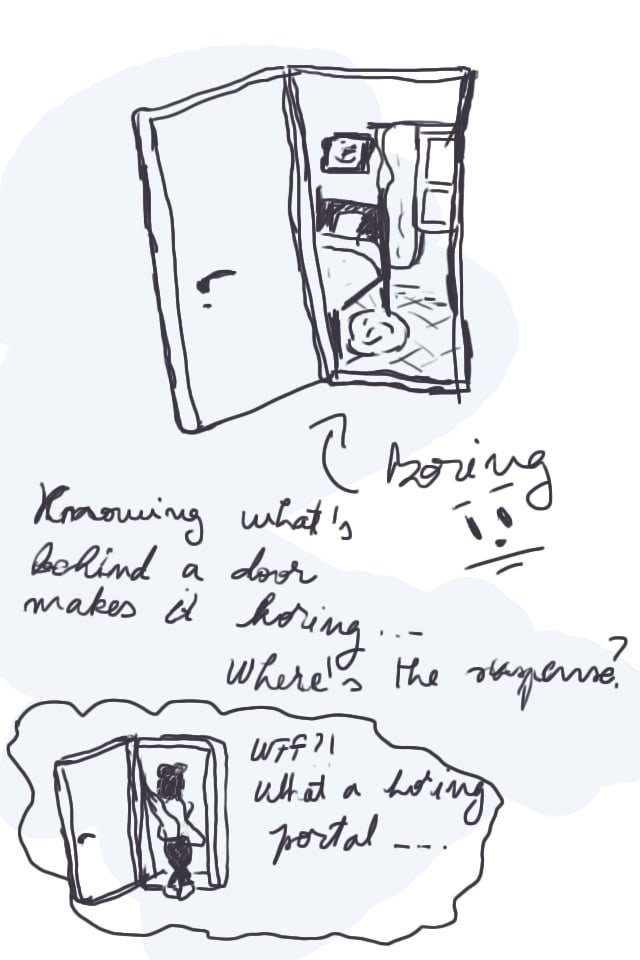 Boring
Knowing what's
behind a door
makes it boring...
Where's the suspense?
Wtf?!
What a boring
portal ....